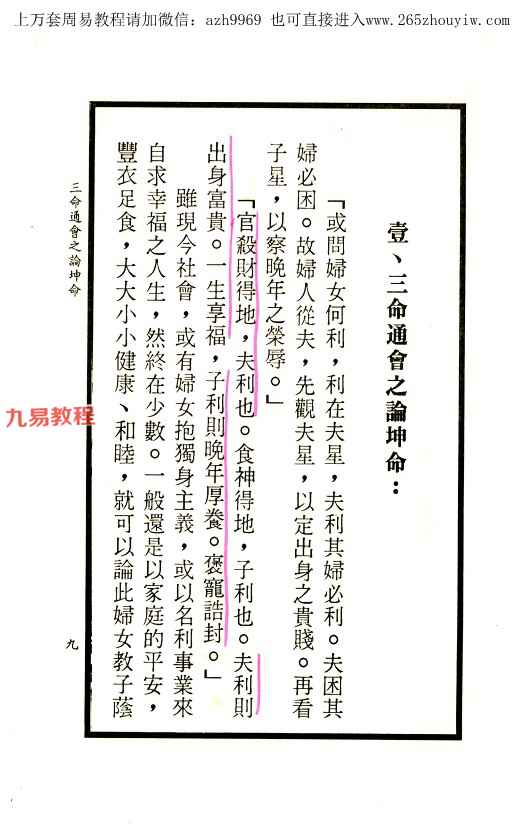 上万套周易教程请加微信：azh9969 也可直接进入www.265zhouyiw.com
壹、三命通會之論坤命：
「或問婦女何利，利在夫星，夫利其婦必利。夫困其
婦必困。故婦人從夫，先觀夫星，以定出身之貴賤。再看
子星，以察晚年之榮辱。」
「官殺財得地，夫利也。食神得地，子利也。夫利則
出身富貴。一生享福，子利則晚年厚養。褒寵誥封。」
雖現今社會，或有婦女抱獨身主義，或以名利事業來
自求幸福之人生，然終在少數。一般還是以家庭的平安，
豐衣足食，大大小小健康、和睦，就可以論此婦女教子蔭
三命通會之論坤命
九
九易教程